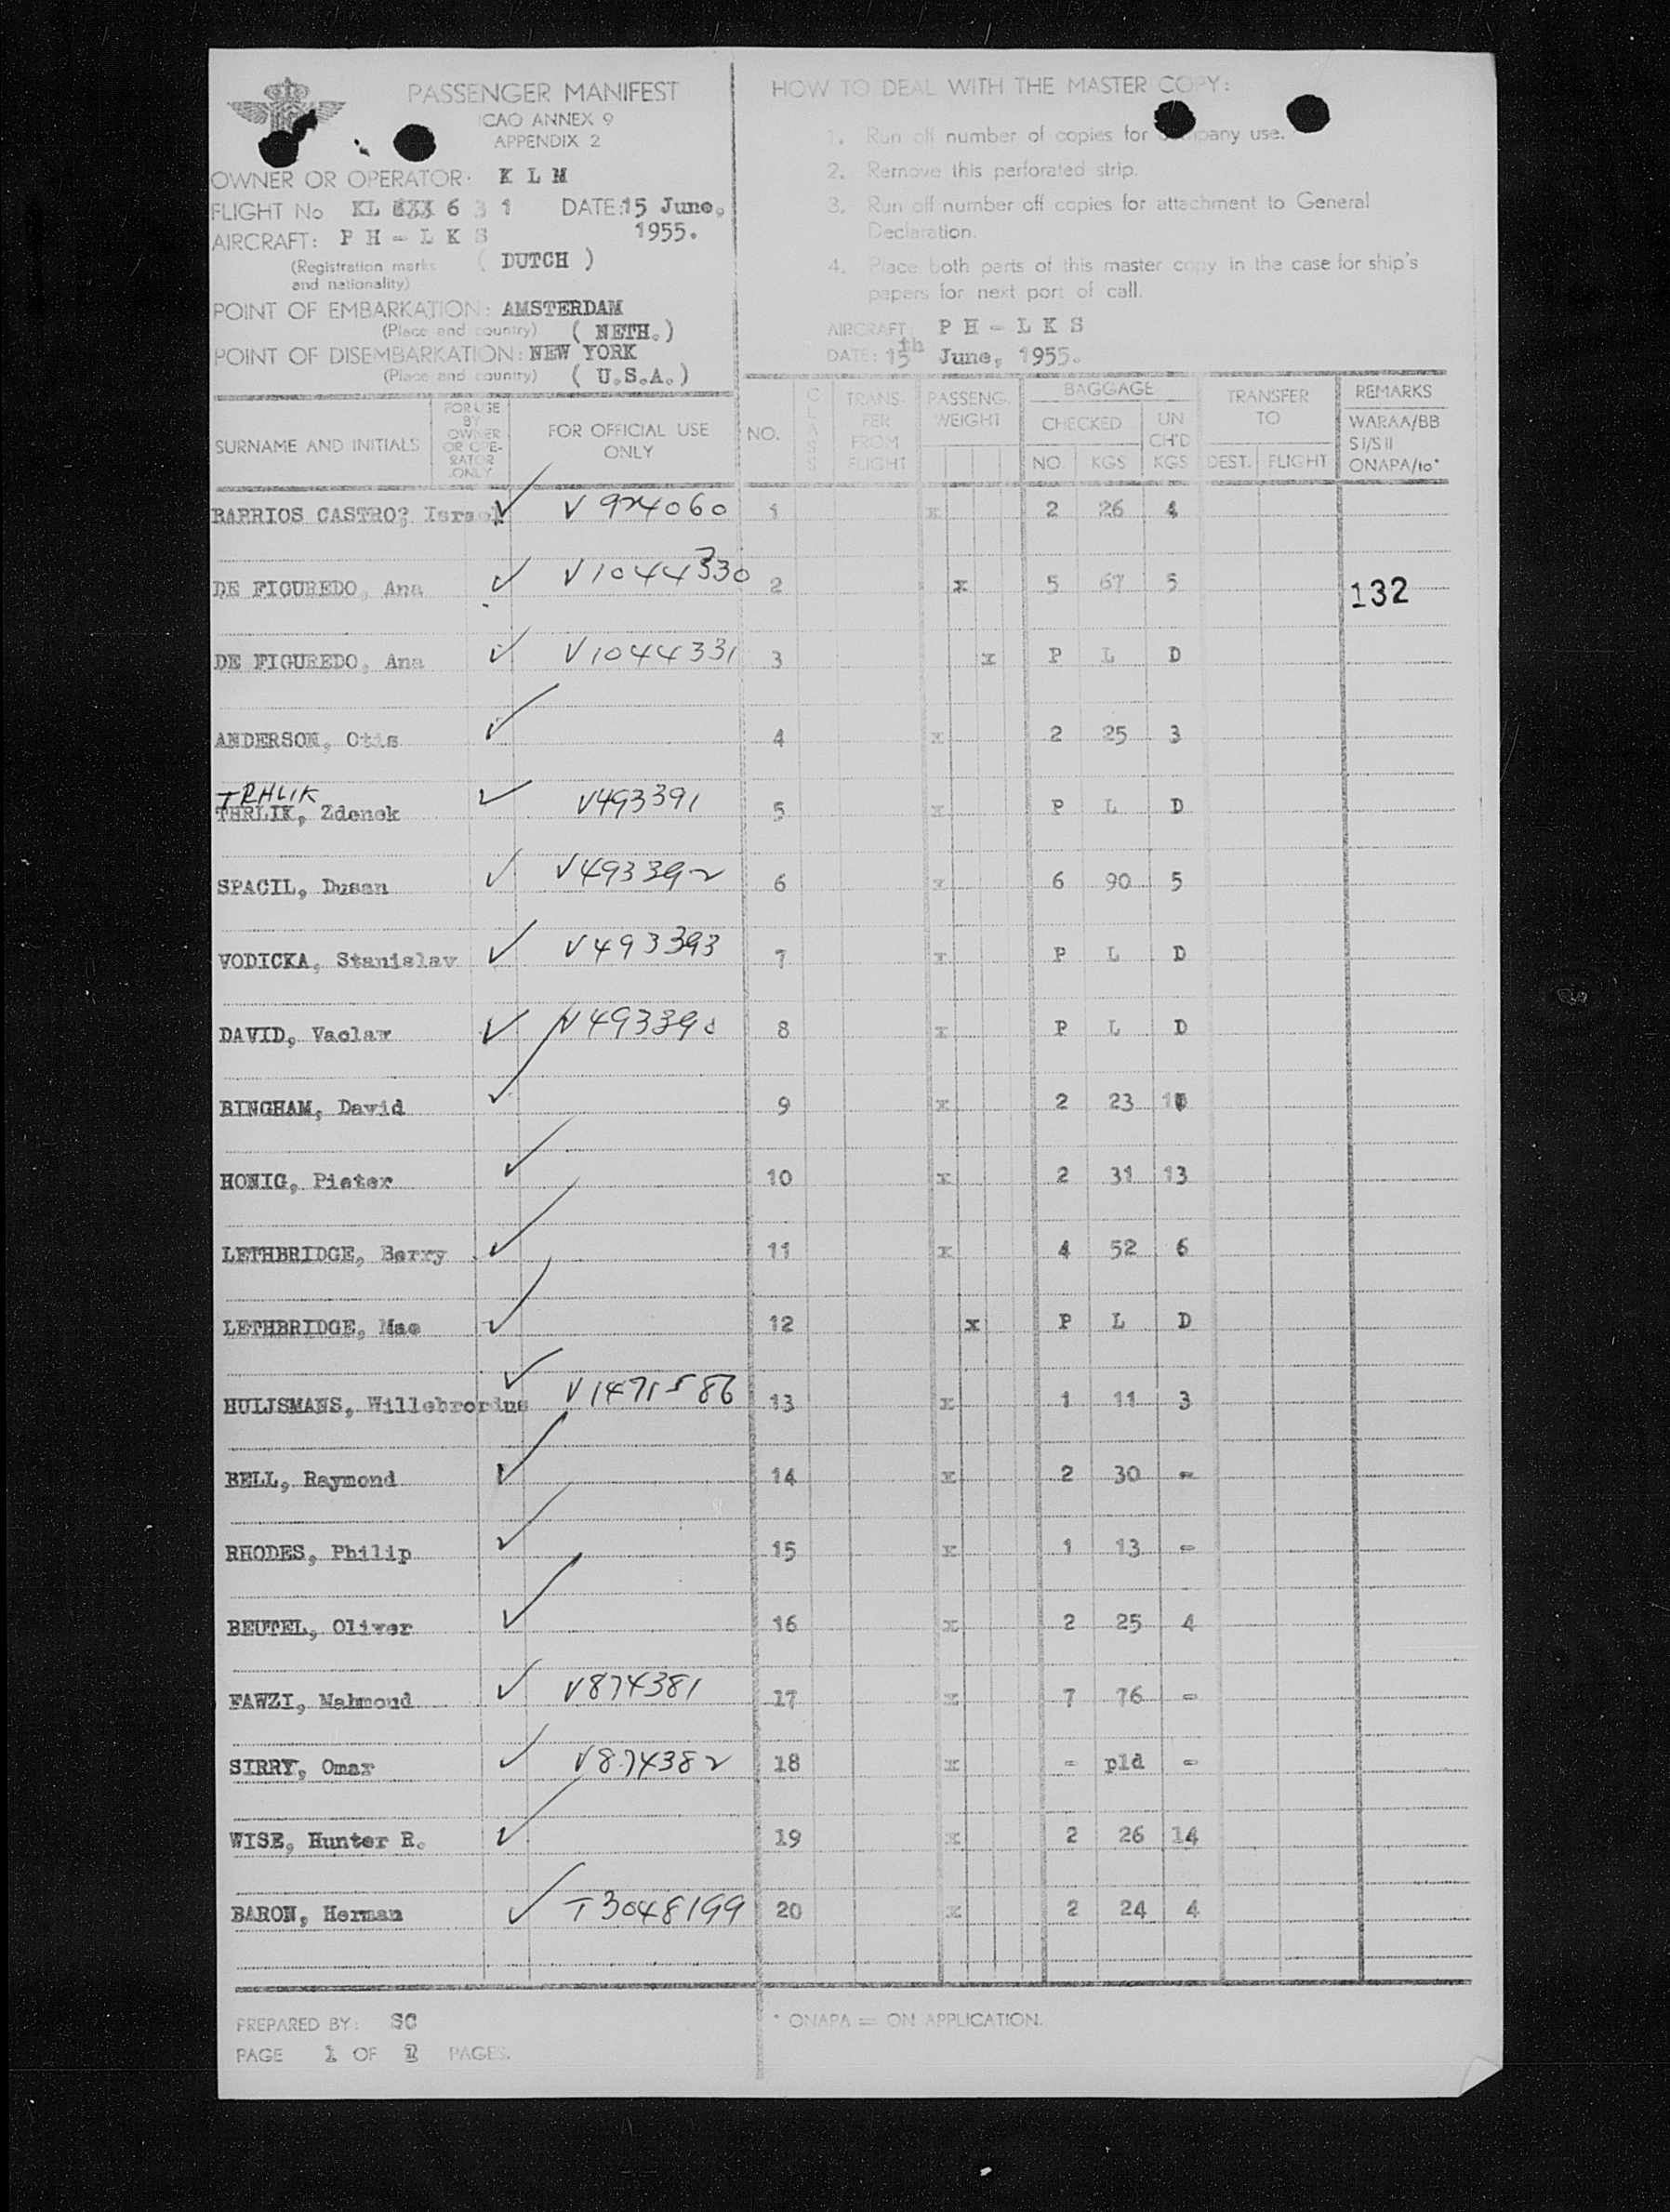 PASSENGER MANIFEST
ICAO ANNEX 9
APPENDIX 2
OWNER OR OPERATOR: K L M
FLIGHT No KL 6 3 1 DATE: 15 June,
1955.
AIRCRAFT: P H - L K S
(Registration marks and nationality) ( DUTCH )
POINT OF EMBARKATION: AMSTERDAM
(Place and country) ( NETH. )
POINT OF DISEMBARKATION: NEW YORK
(Place and country) ( U.S.A. )
HOW TO DEAL WITH THE MASTER COPY:
1. Run off number of copies for company use.
2. Remove this perforated strip.
3. Run off number off copies for attachment to General
Declaration.
4. Place both parts of this master copy in the case for ship's
papers for next port of call.
AIRCRAFT: P H - L K S
DATE: 15th June, 1955.
SURNAME AND INITIALS
FOR USE BY OWNER OR OPE-RATOR ONLY
FOR OFFICIAL USE ONLY
NO.
CLASS
TRANS-FER FROM FLIGHT
PASSENG. WEIGHT
BAGGAGE
CHECKED
NO. KGS
UN CH'D KGS
TRANSFER TO
DEST. FLIGHT
REMARKS
WARAA/BB
SI/SII
ONAPA/to*
BARRIOS CASTRO, Israel ✓ V 924060 1 x 2 26 4
DE FIGUREDO, Ana ✓ V1044330 2 x 5 67 5 132
DE FIGUREDO, Ana ✓ V1044331 3 x P L D
ANDERSON, Otis ✓ 4 x 2 25 3
TRHLIK
THRLIK, Zdenek ✓ V493391 5 x P L D
SPACIL, Dusan ✓ V493392 6 x 6 90 5
VODICKA, Stanislav ✓ V493393 7 x P L D
DAVID, Vaclaw ✓ 8 x P L D
BINGHAM, David ✓ 9 x 2 23
HONIG, Pieter ✓ 10 x 2 31 13
LETHBRIDGE, Berry ✓ 11 x 4 52 6
LETHBRIDGE, Mae ✓ 12 x P L D
HUIJSMANS, Willebrordus ✓ V1471586 13 x 1 11 3
BELL, Raymond ✓ 14 x 2 30 -
RHODES, Philip ✓ 15 x 1 13 -
BEUTEL, Oliver ✓ 16 x 2 25 4
FAWZI, Mahmoud ✓ V874381 17 x 7 76 -
SIRRY, Omar ✓ V874382 18 x - pld -
WISE, Hunter R. ✓ 19 x 2 26 14
BARON, Herman ✓ T3048199 20 x 2 24 4
PREPARED BY: SC
PAGE 1 OF 2 PAGES.
* ONAPA = ON APPLICATION.